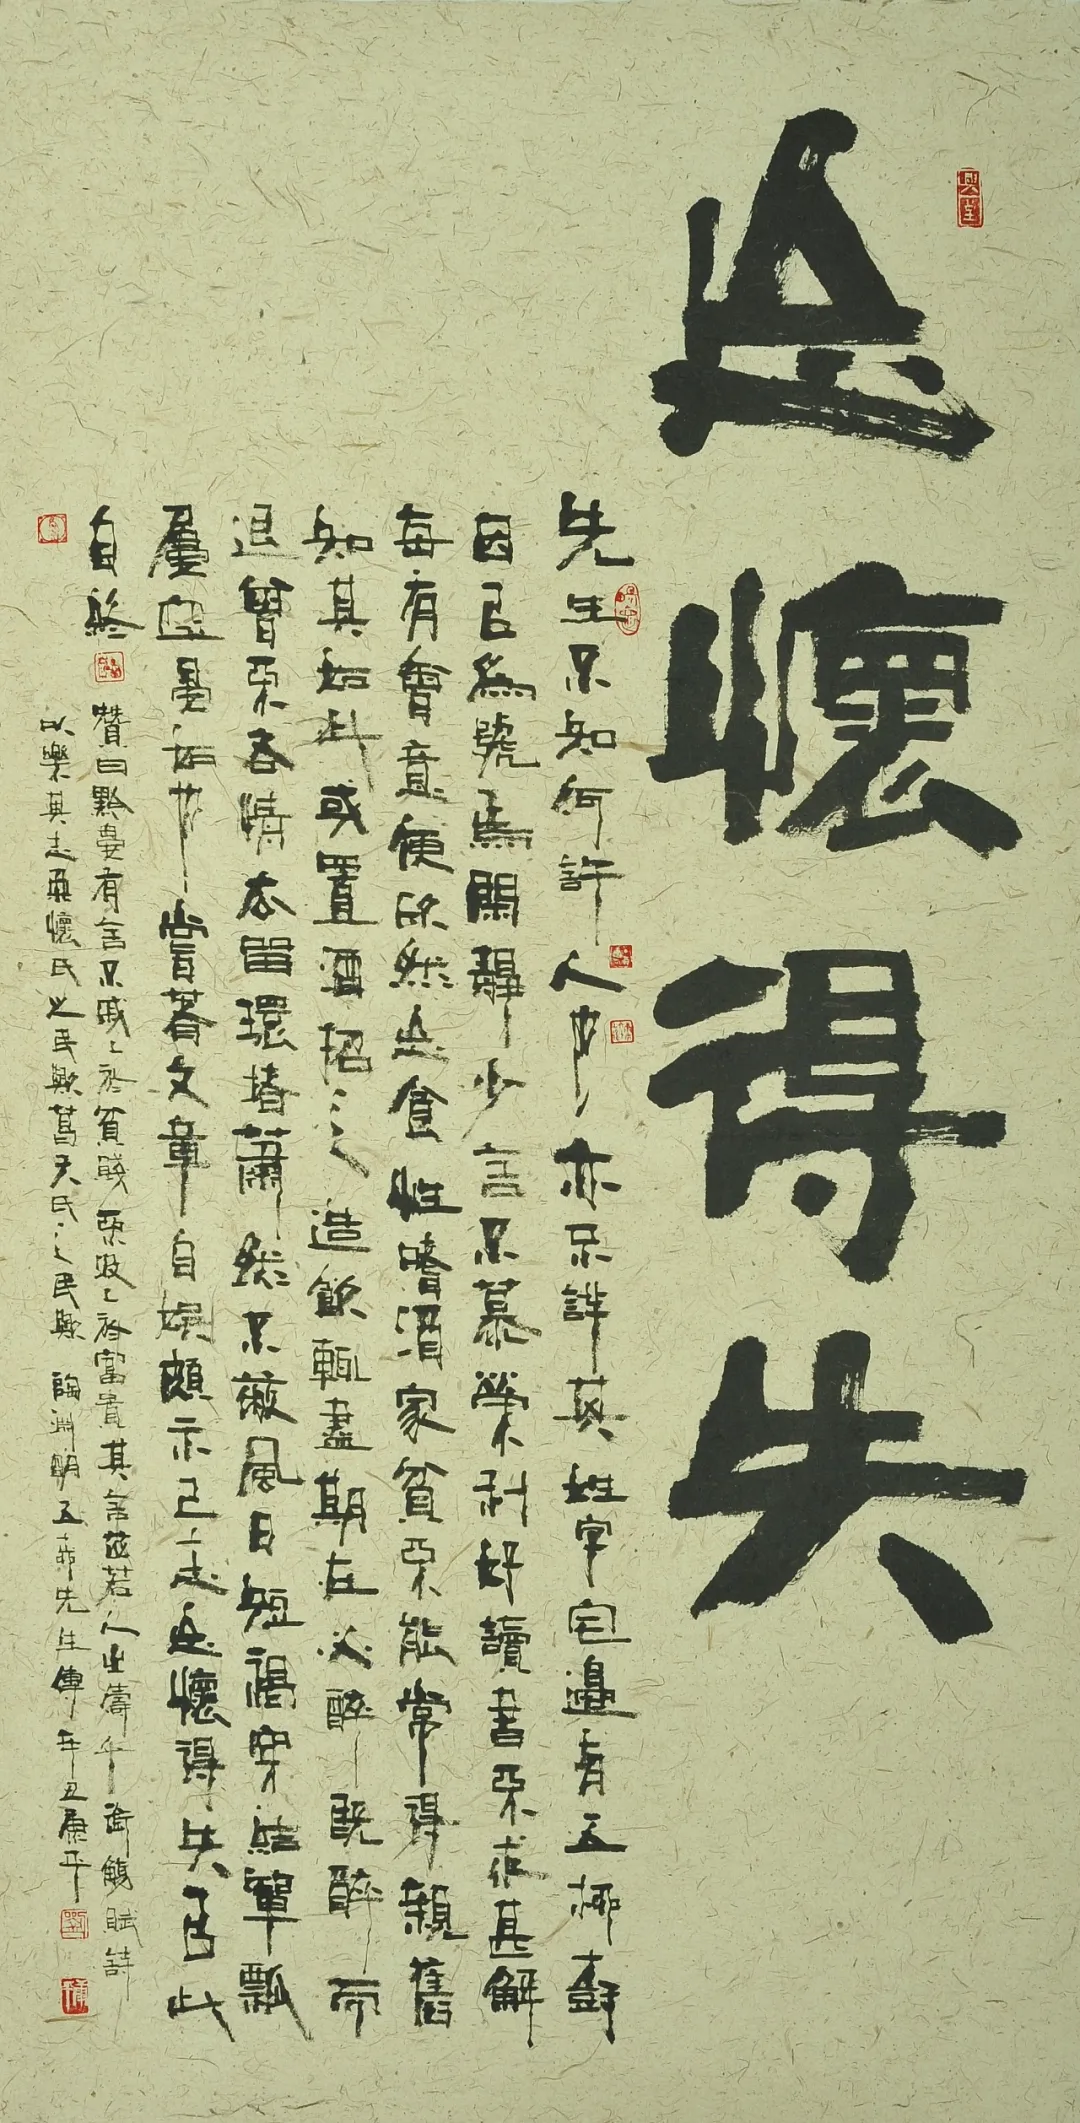 忘懷得失
先生不知何許人也亦不詳其姓字宅邊有五柳樹
因以爲號焉閑靜少言不慕榮利好讀書不求甚解
每有會意便欣然忘食性嗜酒家貧不能常得親舊
知其如此或置酒招之造飲輒盡期在必醉既醉而
退曾不吝情去留環堵蕭然不蔽風日短褐穿結簞瓢
屢空晏如也嘗著文章自娛頗示己志忘懷得失以此
自終
贊曰黔婁有言不戚〻於貧賤不汲〻於富貴其言茲若人之儔乎銜觴賦詩
以樂其志無懷氏之民歟葛天氏之民歟 陶淵明五柳先生傳 辛丑康平